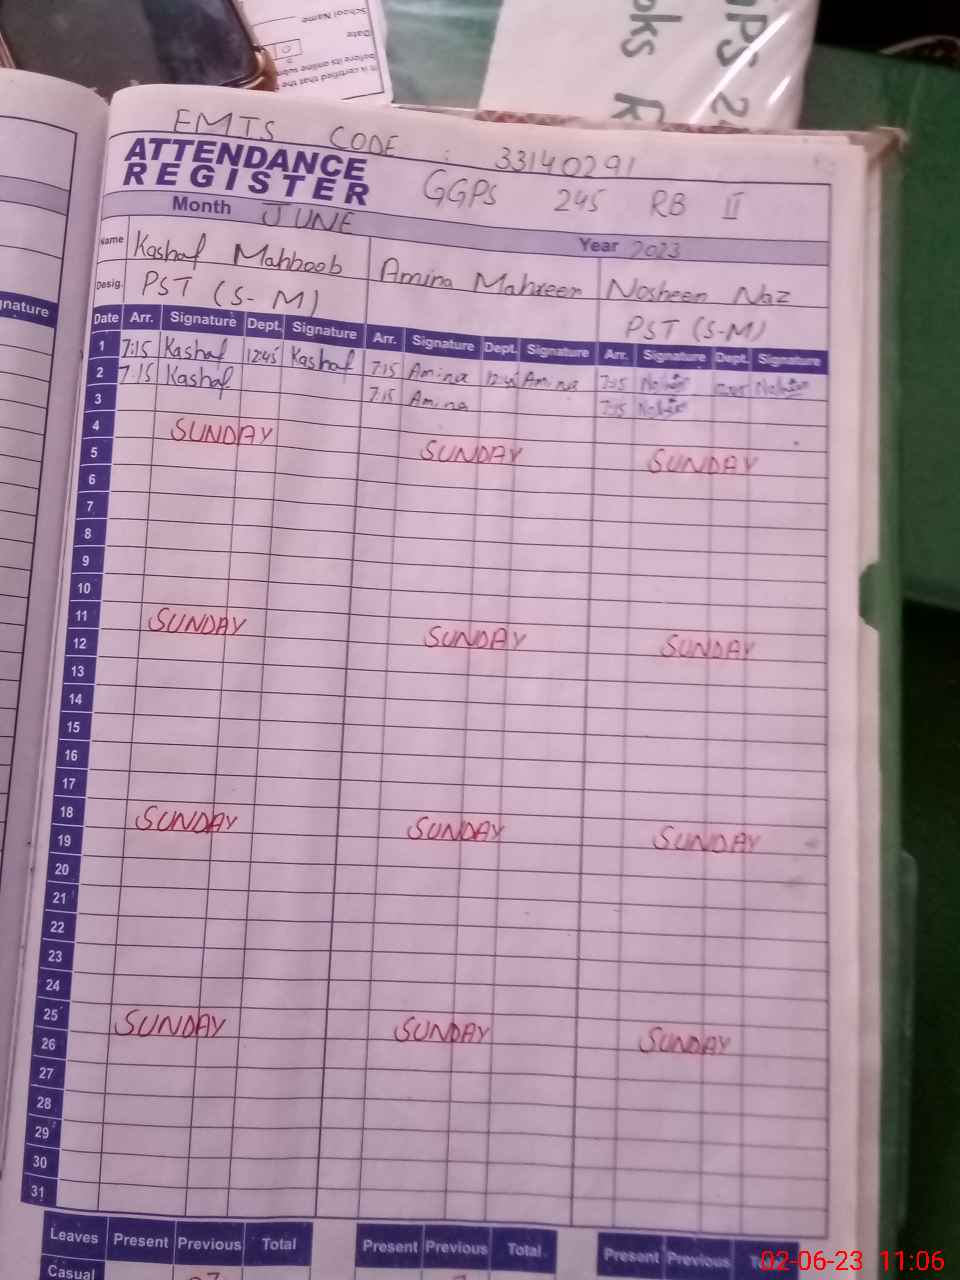 School Name
Date
before its online subm
It is certified that the
oks R
GPS 24
EMIS CODE : 33140291
ATTENDANCE
REGISTER
GGPS 245 RB II
Month JUNE
Year 2023
Name Kashaf Mahboob Amina Mahreen Nosheen Naz
Desig. PST (S-M) PST (S-M)
gnature
Date Arr. Signature Dept. Signature Arr. Signature Dept. Signature Arr. Signature Dept. Signature
1 7:15 Kashaf 12:45 Kashaf 7:15 Amina 12:45 Amina 7:15 12:45
2 7:15 Kashaf 7:15 Amina 7:15
3
4 SUNDAY SUNDAY SUNDAY
5
6
7
8
9
10
11 SUNDAY SUNDAY SUNDAY
12
13
14
15
16
17
18 SUNDAY SUNDAY SUNDAY
19
20
21
22
23
24
25 SUNDAY SUNDAY SUNDAY
26
27
28
29
30
31
Leaves Present Previous Total Present Previous Total Present Previous
Casual
02-06-23 11:06